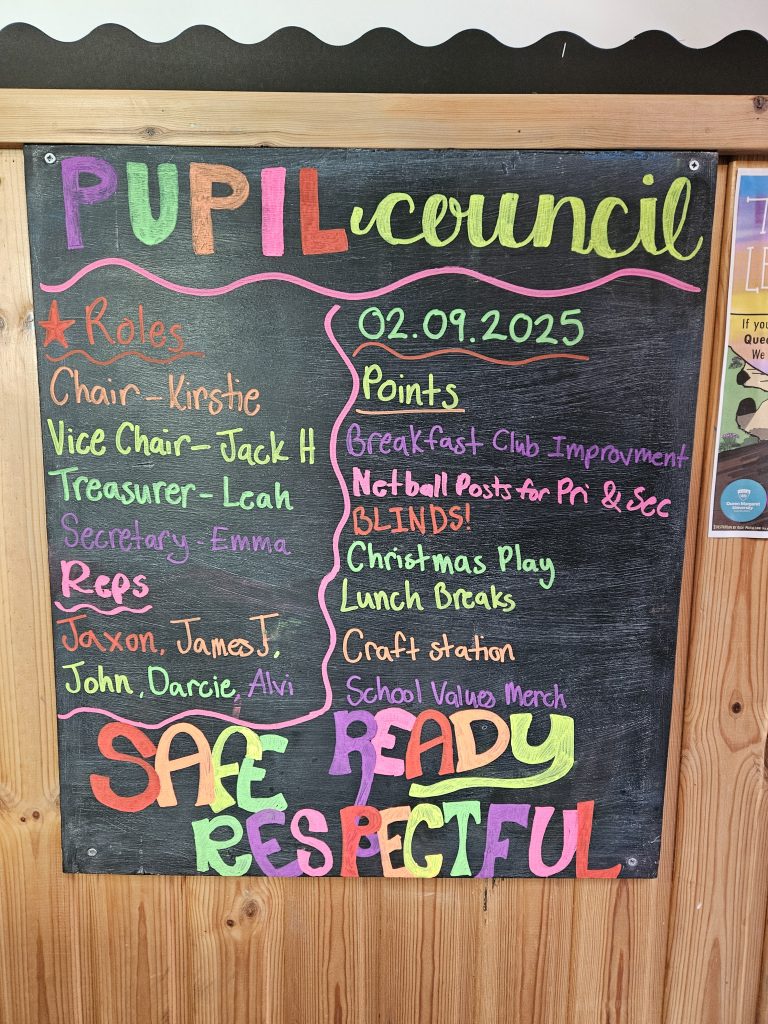 PUPIL council
Roles
Chair - Kirstie
Vice Chair - Jack H
Treasurer - Leah
Secretary - Emma
Reps
Jaxon, James J,
John, Darcie, Alvi
02.09.2025
Points
Breakfast Club Improvment
Netball Posts for Pri & Sec
BLINDS!
Christmas Play
Lunch Breaks
Craft station
School Values Merch
SAFE READY
RESPECTFUL
If you
Quee
We
Queen Margaret
University